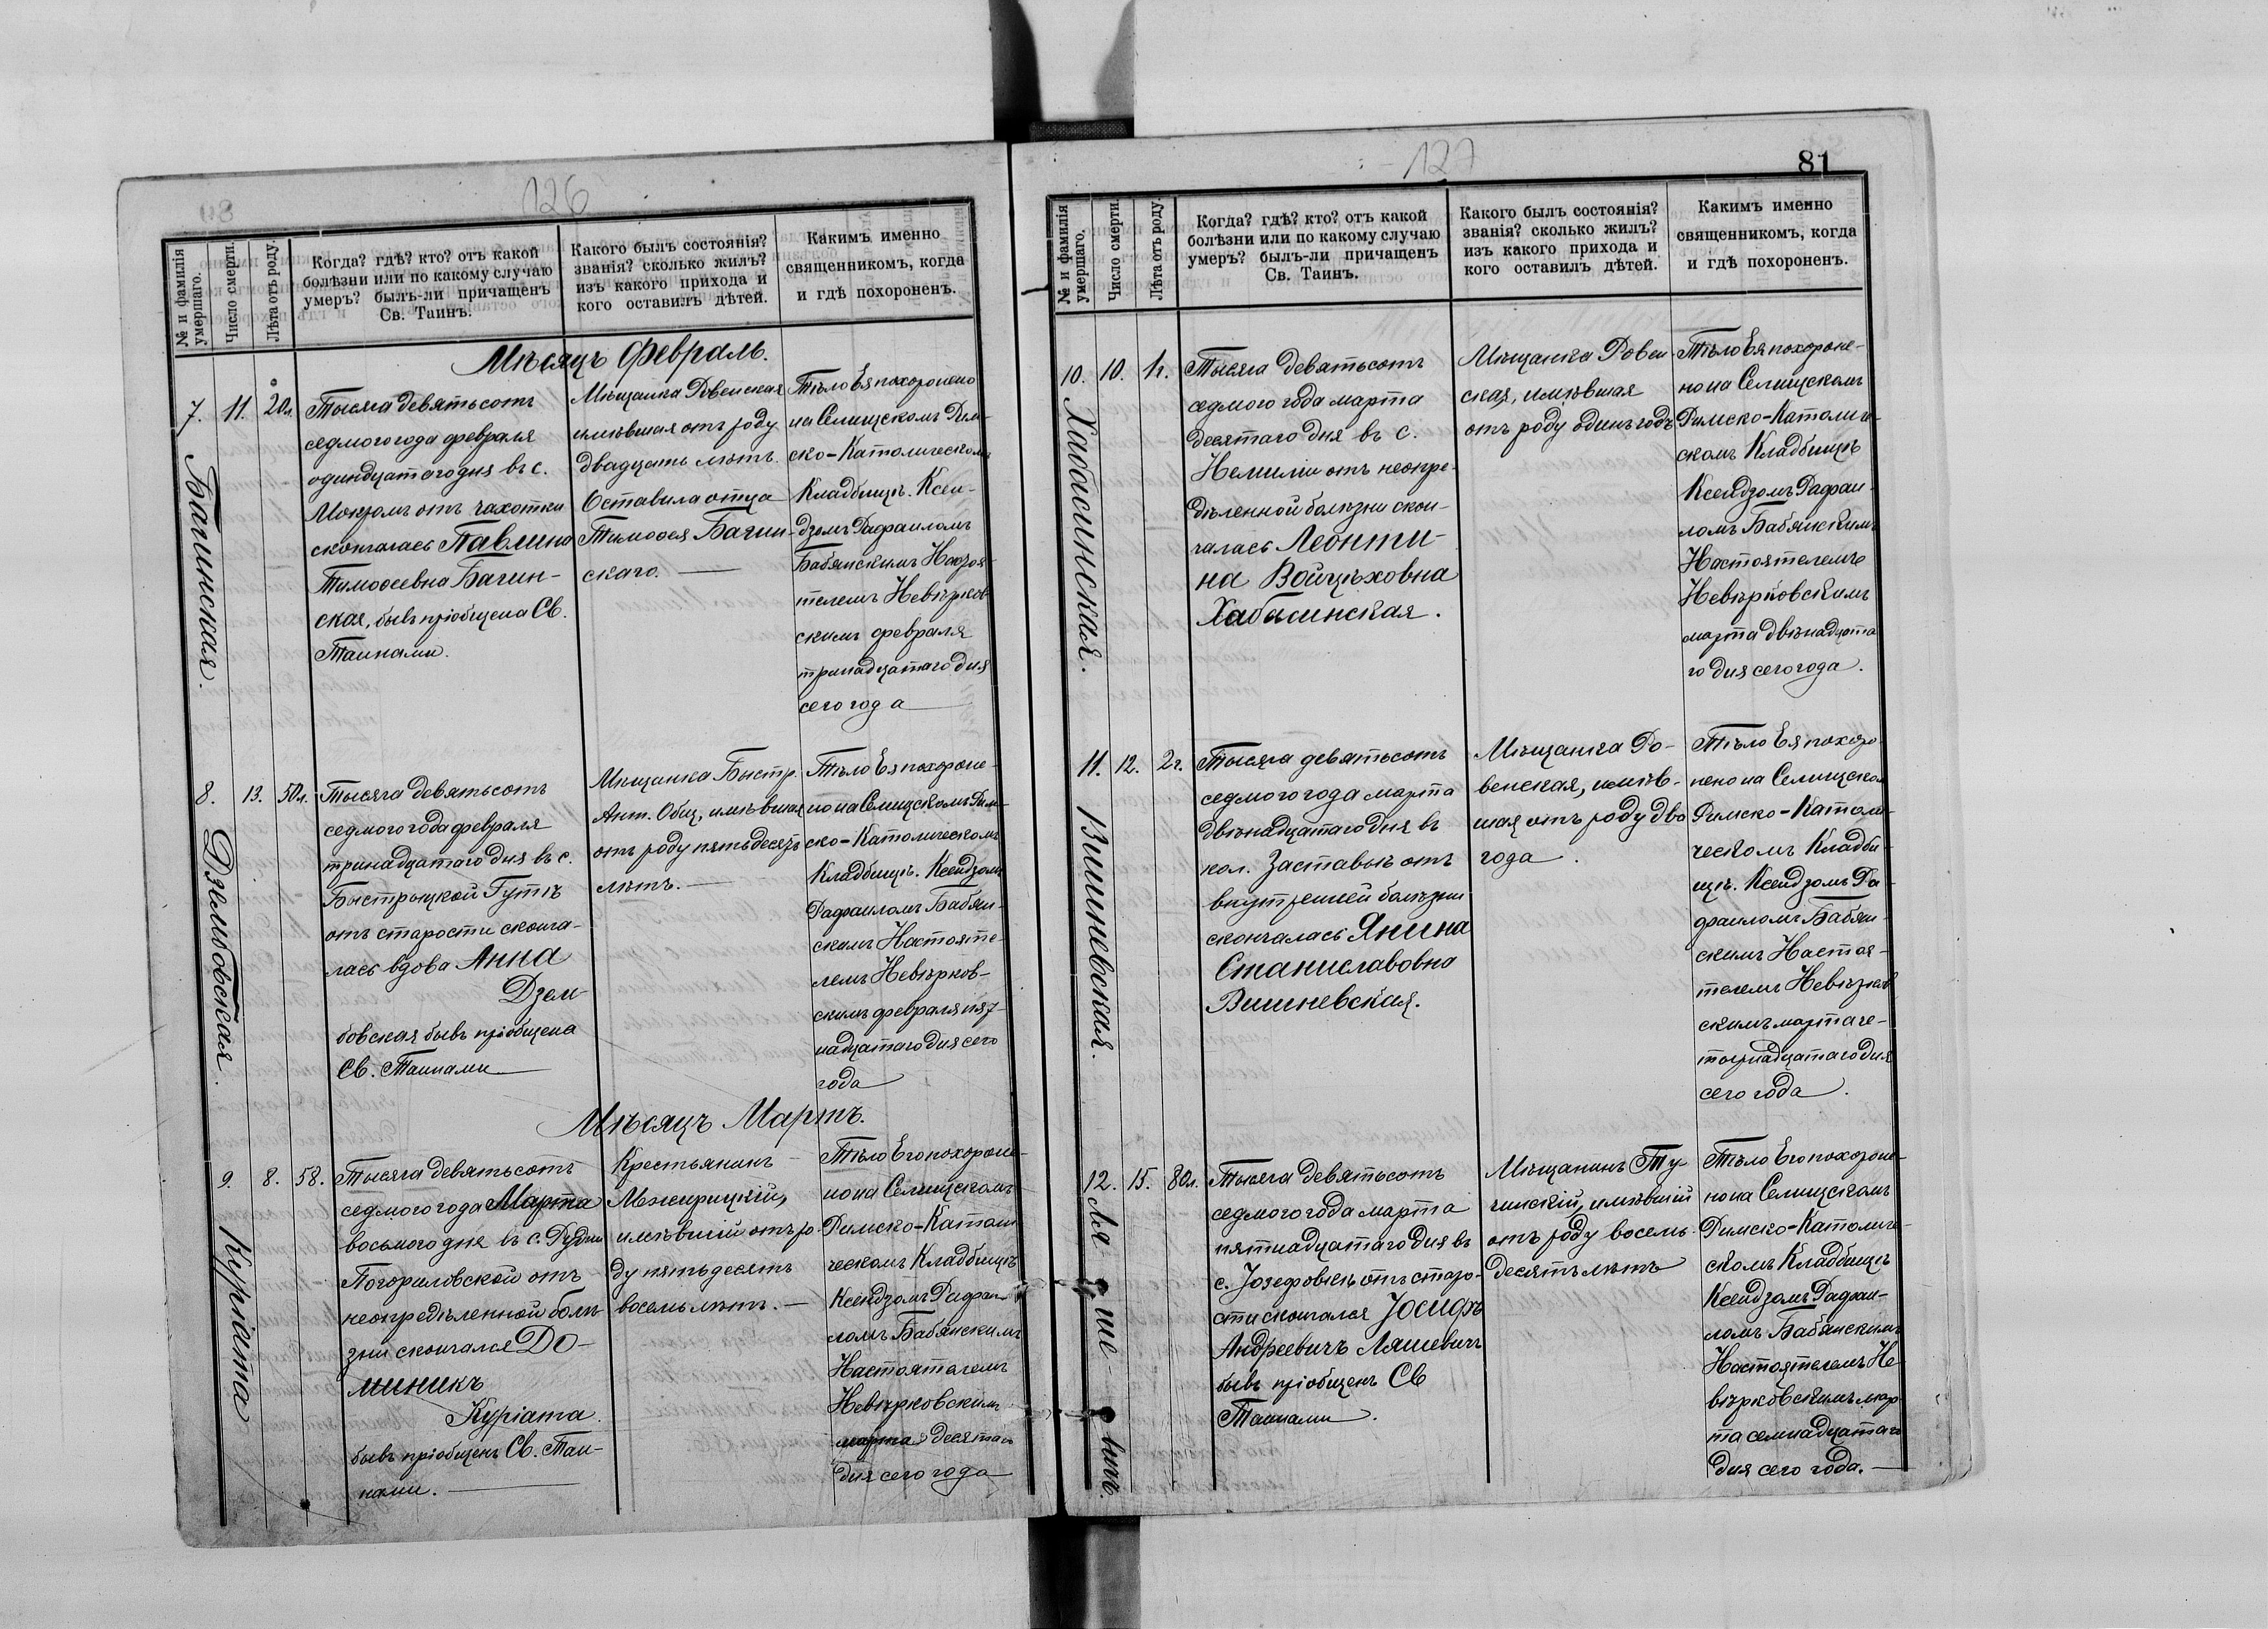 126
№ и фамилія умершаго.
Число смерти.
Лѣта отъ роду.
Когда? гдѣ? кто? отъ какой
болѣзни или по какому случаю
умеръ? былъ-ли причащенъ
Св. Таинъ.
Какого былъ состоянія?
званія? сколько жилъ?
изъ какого прихода и
кого оставилъ дѣтей.
Какимъ именно
священникомъ, когда
и гдѣ похороненъ.
Мѣсяцъ Февраль.
7.
Багинская.
11.
20 л.
Тысяча девятьсотъ
седмого года февраля
одинадцатаго дня въ с.
Мокромъ отъ чахотки
скончалась Павлина
Тимоѳеевна Багин-
ская, бывъ пріобщена Св.
Таинами.
Мѣщанка Ровенская
имѣвшая отъ роду
двадцать лѣтъ.
Оставила отца
Тимоѳея Багин-
скаго. —
Тѣло Ея похоронено
на Селищскомъ Рим-
ско-Католическомъ
Кладбищѣ. Ксен-
дзомъ Рафаиломъ
Бабянскимъ Настоя-
телемъ Невѣрков-
скимъ февраля
тринадцатаго дня
сего года
8.
Дзембовская.
13.
50 л.
Тысяча девятьсотъ
седмого года февраля
тринадцатаго дня въ с.
Быстрыцкой Гутѣ
отъ старости сконча-
лась вдова Анна
Дзем-
бовская бывъ пріобщена
Св. Таинами
Мѣщанка Быстр.
Ант. Общ., имѣвшая
отъ роду пятьдесятъ
лѣтъ. —
Тѣло Ея похороне-
но на Селищскомъ Рим-
ско-Католическомъ
Кладбищѣ. Ксендзомъ
Рафаиломъ Бабян-
скимъ Настояте-
лемъ Невѣрков-
скимъ февраля пят-
надцатаго дня сего
года
Мѣсяцъ Мартъ.
9.
Куріата
8.
58.
Тысяча девятьсотъ
седмого года Марта
восьмого дня въ с. Рудни
Погориловской отъ
неопредѣленной болѣ-
зни скончался До-
миникъ
Куріата
бывъ пріобщенъ Св. Таи-
нами.
Крестьянинъ
Межирицкій,
имѣвшій отъ ро-
ду пятьдесятъ
восемь лѣтъ. —
Тѣло Его похороне-
но на Селищскомъ
Римско-Католи-
ческомъ Кладбищѣ
Ксендзомъ Рафаи-
ломъ Бабянскимъ
Настоятелемъ
Невѣрковскимъ
марта десятаго
дня сего года
127
81
№ и фамилія умершаго.
Число смерти.
Лѣта отъ роду.
Когда? гдѣ? кто? отъ какой
болѣзни или по какому случаю
умеръ? былъ-ли причащенъ
Св. Таинъ.
Какого былъ состоянія?
званія? сколько жилъ?
изъ какого прихода и
кого оставилъ дѣтей.
Какимъ именно
священникомъ, когда
и гдѣ похороненъ.
10.
Хабасинская.
10.
1 г.
Тысяча девятьсотъ
седмого года марта
десятаго дня въ с.
Немили отъ неопре-
дѣленной болѣзни скон-
чалась Леонти-
на Войцѣховна
Хабасинская.
Мѣщанка Ровен
ская, имѣвшая
отъ роду одинъ годъ
Тѣло Ея похороне-
но на Селищскомъ
Римско-Католиче-
скомъ Кладбищѣ
Ксендзомъ Рафаи-
ломъ Бабянскимъ
Настоятелемъ
Невѣрковскимъ
марта двѣнадцата
го дня сего года.
11.
Вишневская.
12.
2 г.
Тысяча девятьсотъ
седмого года марта
двѣнадцатаго дня въ
кол. Заставьѣ отъ
внутренней болѣзни
скончалась Янина
Станиславовна
Вишневская.
Мѣщанка Ро-
венская, имѣв-
шая отъ роду два
года.
Тѣло Ея похоро-
нено на Селищском
Римско-Католи-
ческомъ Кладби-
щѣ. Ксендзомъ Ра-
фаиломъ Бабян-
скимъ Настоя-
телемъ Невѣрков
скимъ марта че-
тырнадцатаго дня
сего года.
12.
Ляшевичъ.
15.
80 л.
Тысяча девятьсотъ
седмого года марта
пятнадцатаго дня въ
с. Іозефовкѣ отъ старо-
сти скончался Іосифъ
Андреевичъ Ляшевичъ
бывъ пріобщенъ Св
Таинами.
Мѣщанинъ Ту-
чинскій, имѣвшій
отъ роду восемь-
десятъ лѣтъ
Тѣло Его похороне-
но на Селищскомъ
Римско-Католиче-
скомъ Кладбищѣ
Ксендзомъ Рафаи-
ломъ Бабянскимъ
Настоятелемъ Не-
вѣрковскимъ мар
та семнадцатаго
дня сего года. —